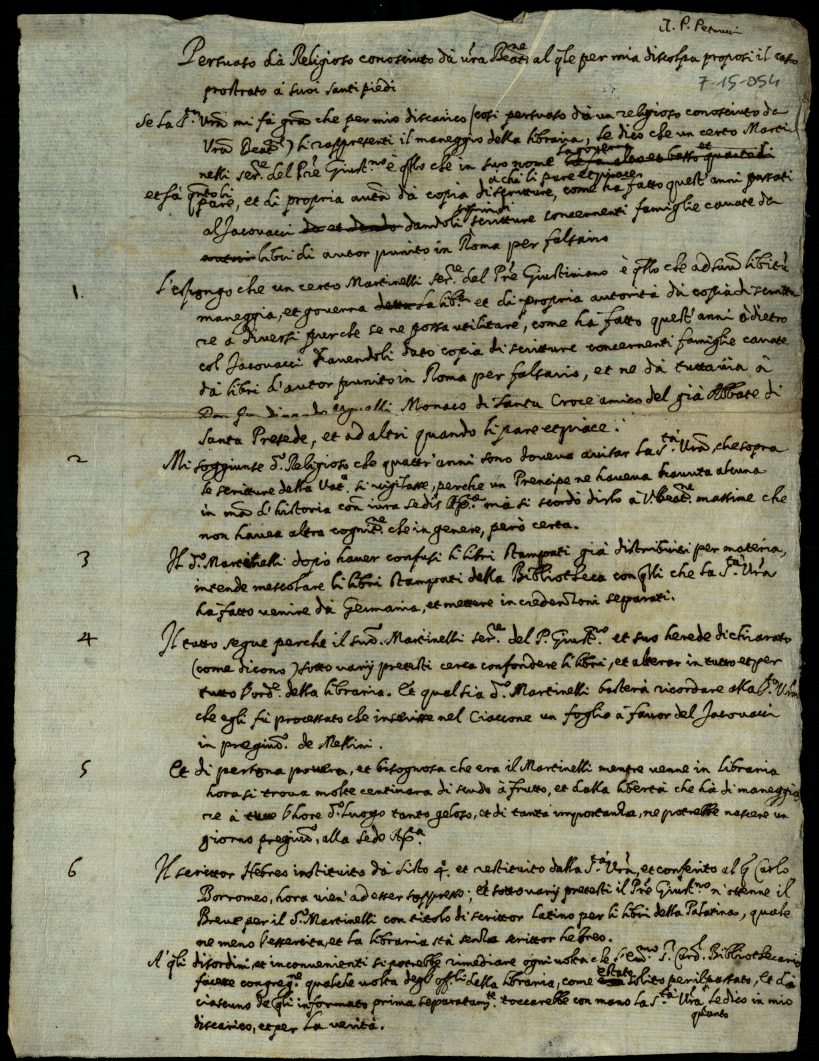 A. P. Petrucci
7-15-054
Persuaso dà Religioso conosciuto dà v'ra Beat.ne al q'le per mia discolpa proposi il caso
prostrato à suoi santi piedi
Se la S.tà Vr̃a mi fà gr̃a che per mio discarico (così persuaso da un religioso conosciuto da
Vr̃a Beat.ne) li rappresenti il maneggio della libraria, le dico che un certo Marti
nelli ser.re del Pr̃e Giust.no è q̃llo che in suo nome la governa et
à chi li pare et piace
et fà q̃nto li pare, et di propria autã dà copia di scritture, come ha fatto quest'anni passati
al Jacovacci dandoli scritture concernenti famiglie cavate da
libri di autor punito in Roma per falsario
1. L'espongo che un certo Martinelli ser.re del Pr̃e Giustiniano è q̃llo che ad suum libitũ
maneggia, et governa la lib.a et di propria autorità dà copia di scrittu
re à diversi perche se ne possa utilitare, come hà fatto quest'anni à dietro
col Jacovacci havendoli dato copia di scritture concernenti famiglie cavate
dà libri d'autor punito in Roma per falsario, et ne dà tuttavia à
Don Monaco di Santa Croce amico del già Abbate di
Santa Presede, et ad altri quando li pare et piace.
2 Mi soggiunse d.o Religioso che quattr'anni sono doveva avisar la S.tà Vr̃a, che sopra
le scritture della Vat.a si vigilasse, perche un Prencipe ne haveva havuta alcuna
in mã d'historia con iura sedis Ap.cæ mà si scordò dirlo à V. Beat.ne massime che
non havea altra cognit.ne che in genere, però certa.
3 Il d.o Martinelli dopò haver confusi li libri stampati già distribuiti per materia,
intende mescolare li libri stampati della Bibliotheca con q̃lli che la S.tà Vr̃a
ha fatto venire dà Germania, et mettere in credenzoni separati.
4 Il tutto segue perche il sud.o Martinelli ser.re del P. Giust.no et suo herede dichiarato
(come dicono) sotto varij pretesti cerca confondere li libri, et alterar in tutto et per
tutto l'ord.e della libraria. Et qual sia d.o Martinelli basterà ricordare alla S.tà Vr̃a
che egli fù processato che inserisse nel Ciaccone un foglio à favor del Jacovacci
in pregiud.o de Mellini.
5 Et di persona povera, et bisognosa che era il Martinelli mentre venne in libraria
hora si trova molte centinara di scudi à frutto, et dalla libertà che hà di maneggia
re à l'hore d.o luogo tanto geloso, et di tanta importanza, ne potrebbe nascere un
giorno pregiud.o, alla sede Ap.ca
6 Il scrittor Hebreo instituito dà Sisto 4.o et restituito dalla S.tà Vr̃a, et conferito al q̃ Carlo
Borromeo, hora vien'ad esser soppresso; et sotto varij pretesti il Pr̃e Giust.no n'ottenne il
Breve per il d.o Martinelli con titolo di scrittor latino per li libri della Palatina, quale
ne meno l'essercita, et la libraria stà senza scrittor hebreo.
A q̃sti disordini, et inconvenienti si potrebbe rimediare ogni volta che l'Em.mo S.r Card. Bibliothecario
facesse congreg.ne qualche volta degl'off.li della libraria, come è stato solito per il passato, et da
ciascuno de q̃li informato prima separatam.te toccarebbe con mano la S.tà Vr̃a quanto le dico in mio
discarico, et per la verità.